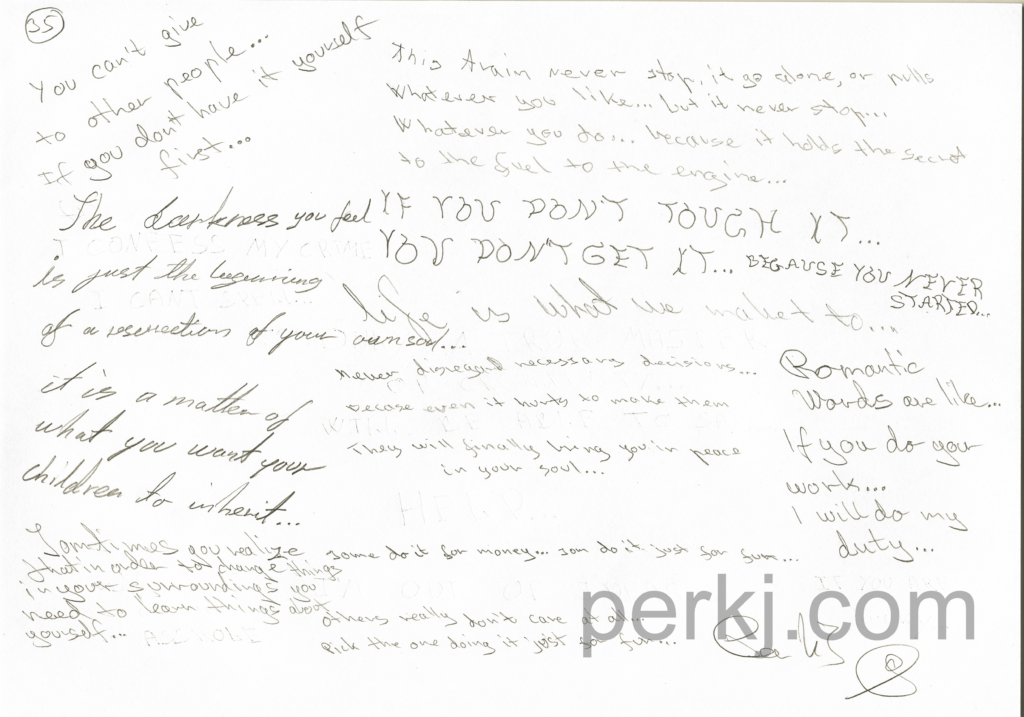 35
You can't give
to other people...
If you don't have it yourself
first...
This train never stop, it go alone, or pulls
Whatever you like... but it never stop...
Whatever you do... because it holds the secret
to the fuel to the engine...
The darkness you feel
is just the beginning
of a resurection of your own soul...
it is a matter of
what you want your
children to inherit...
IF YOU DON'T TOUGH IT...
YOU DON'T GET IT... BECAUSE YOU NEVER
STARTED...
life is what we maket to...
Never disregard necessary decisions...
becase even it hurts to make them
They will finally bring you in peace
in your soul...
Romantic
Words are like...
If you do your
work...
I will do my
duty...
Somtimes you realize
that in order to change things
in your surroundings you
need to learn things about
yourself...
some do it for money... som do it just for fun...
others really don't care at all...
Pick the one doing it just for fun...
I CONFESS MY CRIME
HELLO...
ASSHOLE
perkj.com